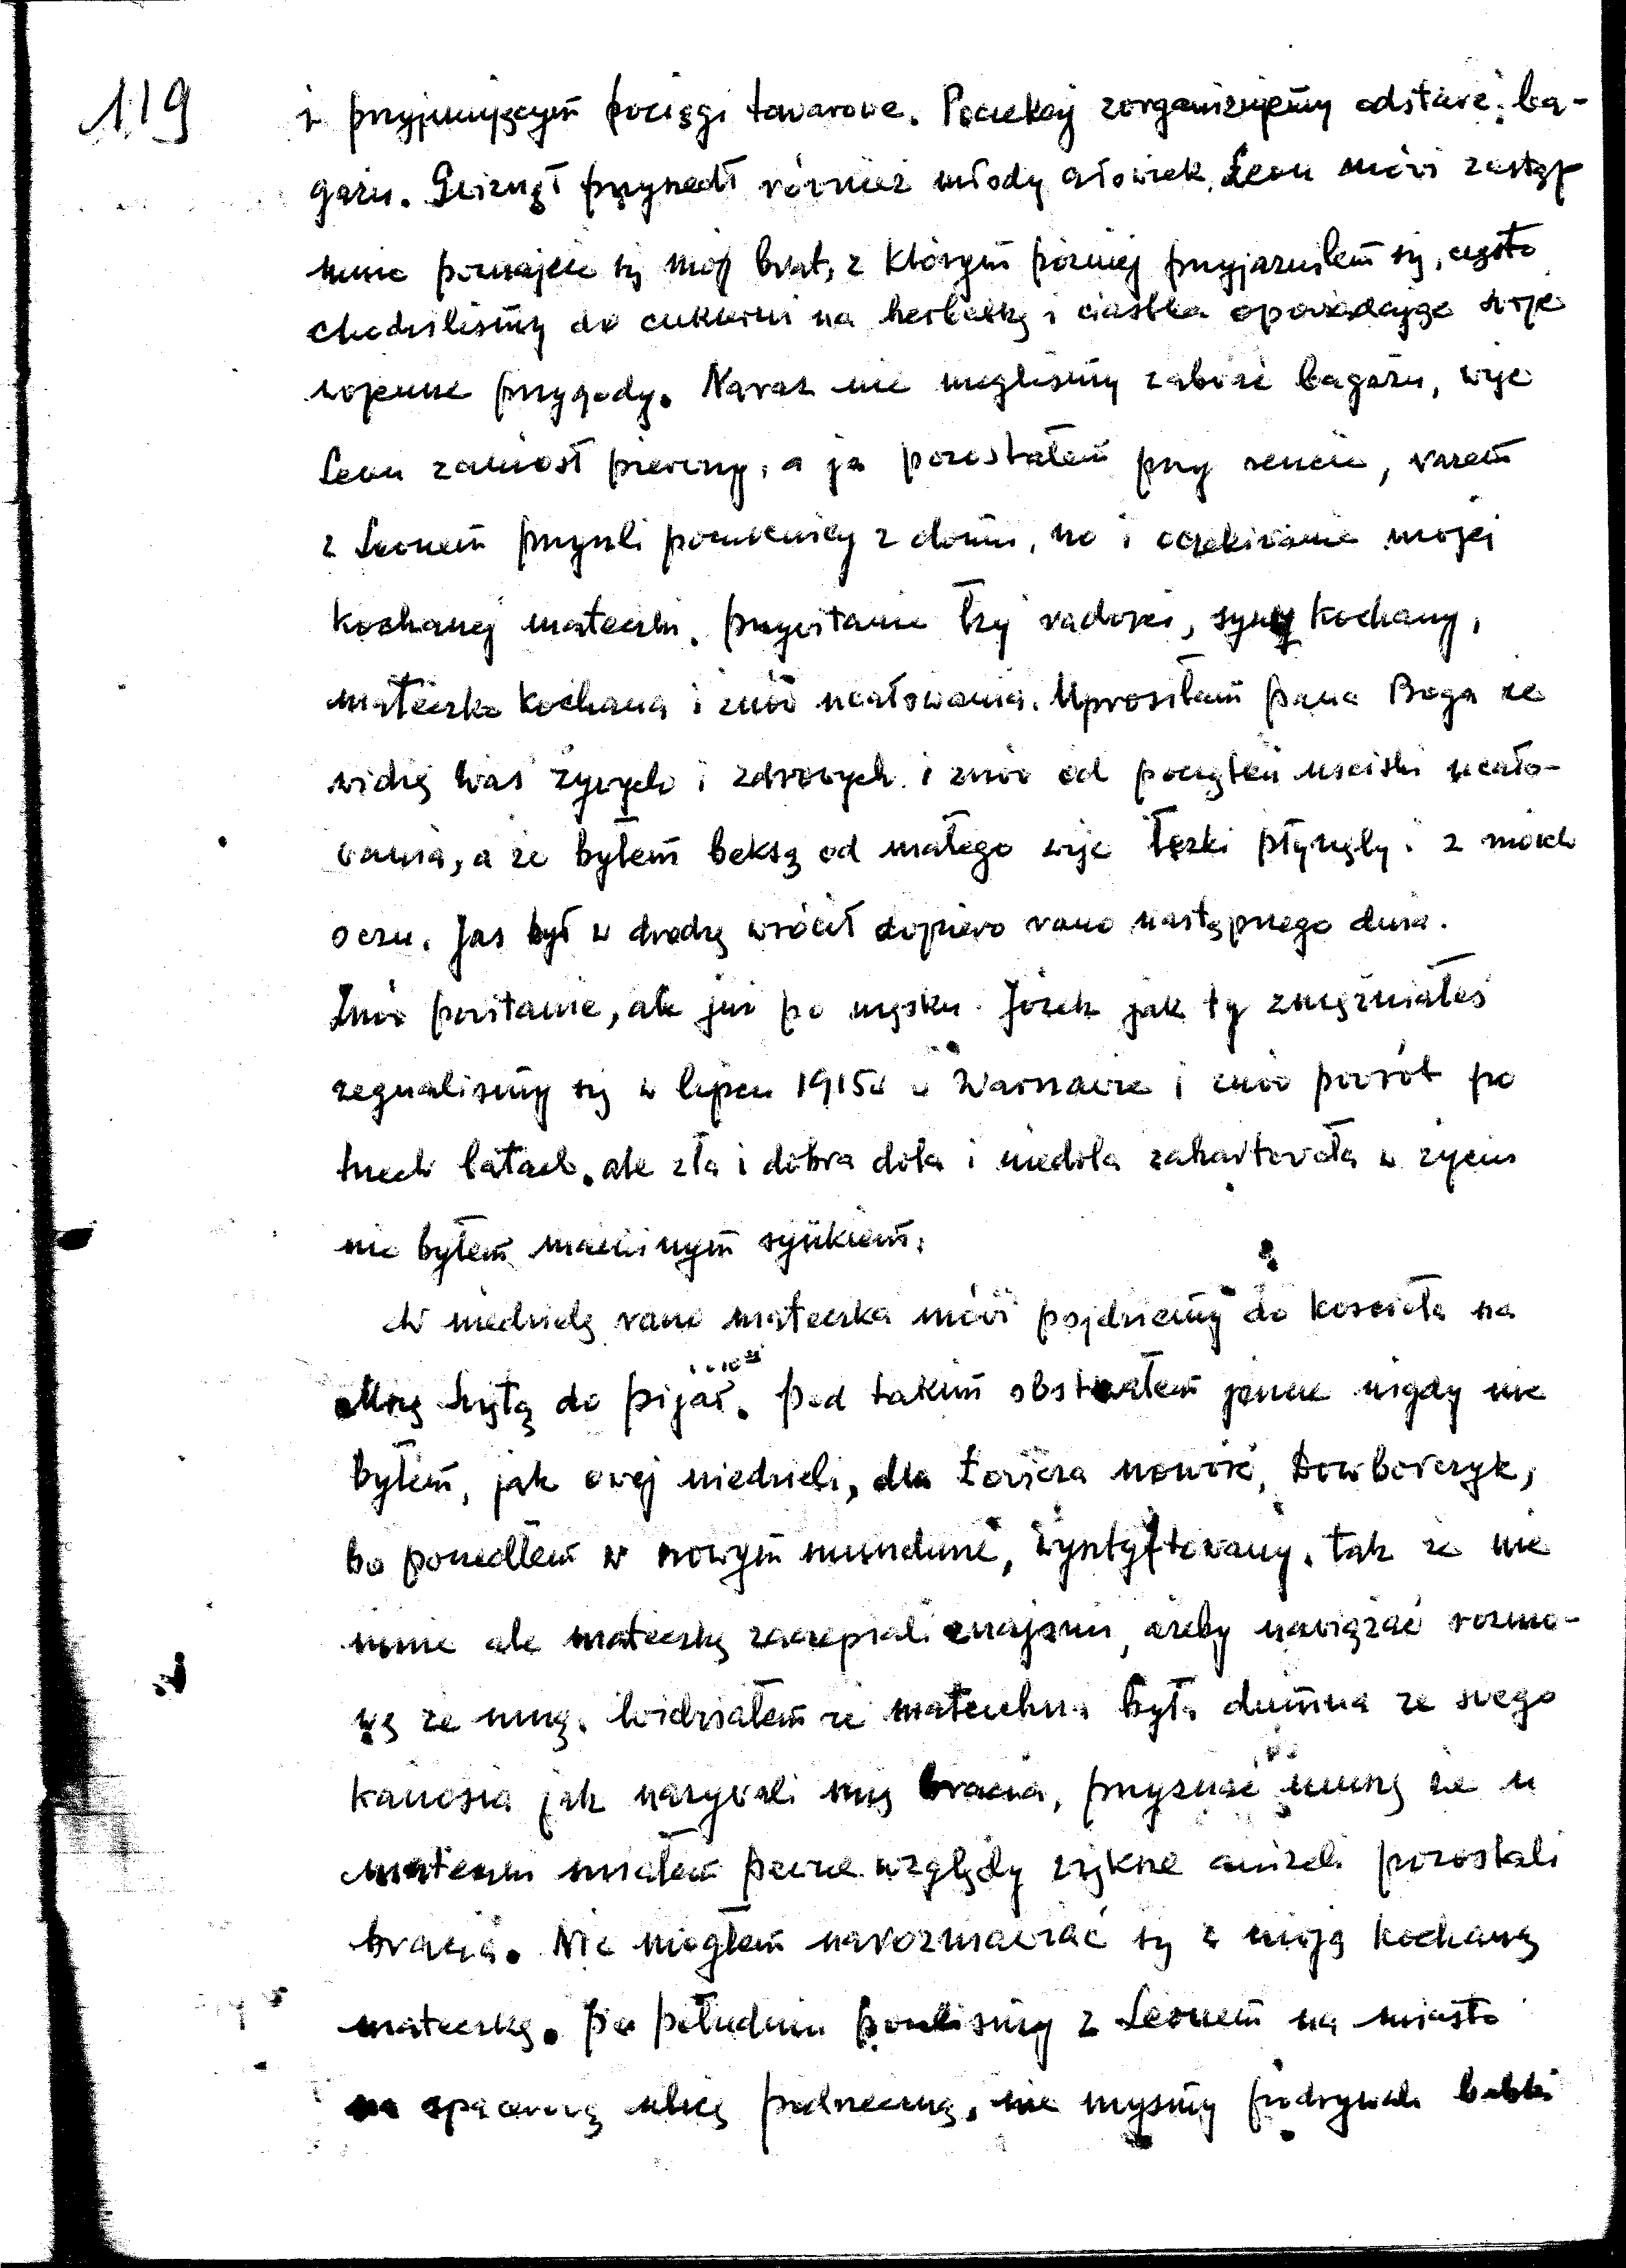 119
i przyjmującym pociągi towarowe. Poczekaj zorganizujemy odstawić ba-
gażu. Gwiznął przyszedł również młody człowiek, Leon mówi zastąp
mnie poznajcie się mój brat, z którym później przyjaźniłem się, często
chodziliśmy do cukierni na herbatkę i ciastka opowiadając swoje
wojenne przygody. Naraz nie mogliśmy zabrać bagażu, więc
Leon zaniósł pierwszy, a ja pozostałem przy reszcie, razem
z Leonem przyszli pomocnicy z domu, no i oczekiwanie mojej
kochanej mateczki. przywitanie łzy radości, syny kochany,
mateczko kochana i znów ucałowania. Uprosiłam pana Boga że
widzę was żywych i zdrowych i znów od początku uściski ucało-
wania, a że byłem beksą od małego więc łezki płynęły i z moich
oczu. Jaś był w drodze wrócił dopiero rano następnego dnia.
Znów powitanie, ale już po męsku. Józek jak ty zmężniałeś
żegnaliśmy się w lipcu 1915r w Warszawie i znów powrót po
trzech latach. ale zła i dobra dola i niedola zahartowała w życiu
nie byłem maminym synkiem.
W niedzielę rano mateczka mówi pójdziemy do kościoła na
Mszę Świętą do pijar. Pod takim obstrzałem jeszcze nigdy nie
byłem, jak owej niedzieli, dla Łowicza nowość, Dowborczyk,
bo poszedłem w nowym mundurze, wysztyftowany. tak że nie
mnie ale mateczkę zaczepiali znajomi, ażeby nawiązać rozmo-
wę ze mną. Widziałem że mateczka była dumna ze swego
kanosia jak nazywali mię bracia, przyznać muszę że u
mateczki miałem pewne względy większe aniżeli pozostali
bracia. Nie mogłem narozmawiać się z moją kochaną
mateczką. Po południu poszliśmy z Leonem na miasto
na spacerową ulicę podrzeczną, nie myśmy podrywali babki